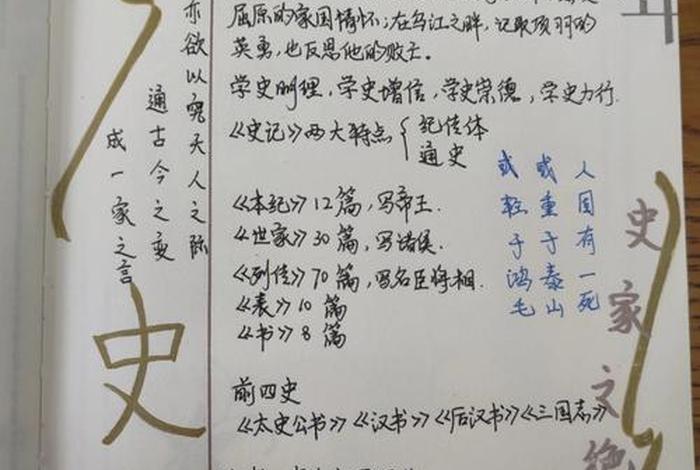 屈原的家国情怀；在乌江之畔，记取项羽的
英勇，也反思他的败亡。
学史明理，学史增信，学史崇德，学史力行.
《史记》两大特点
纪传体
通史
《本纪》12篇，写帝王.
《世家》30篇，写诸侯.
《列传》70篇，写名臣将相.
《表》10篇
《书》8篇
前四史
《太史公书》《汉书》《后汉书》《三国志》
人固有一死
或重于泰山
或轻于鸿毛
亦欲以究天人之际
通古今之变
成一家之言
史
史家之绝